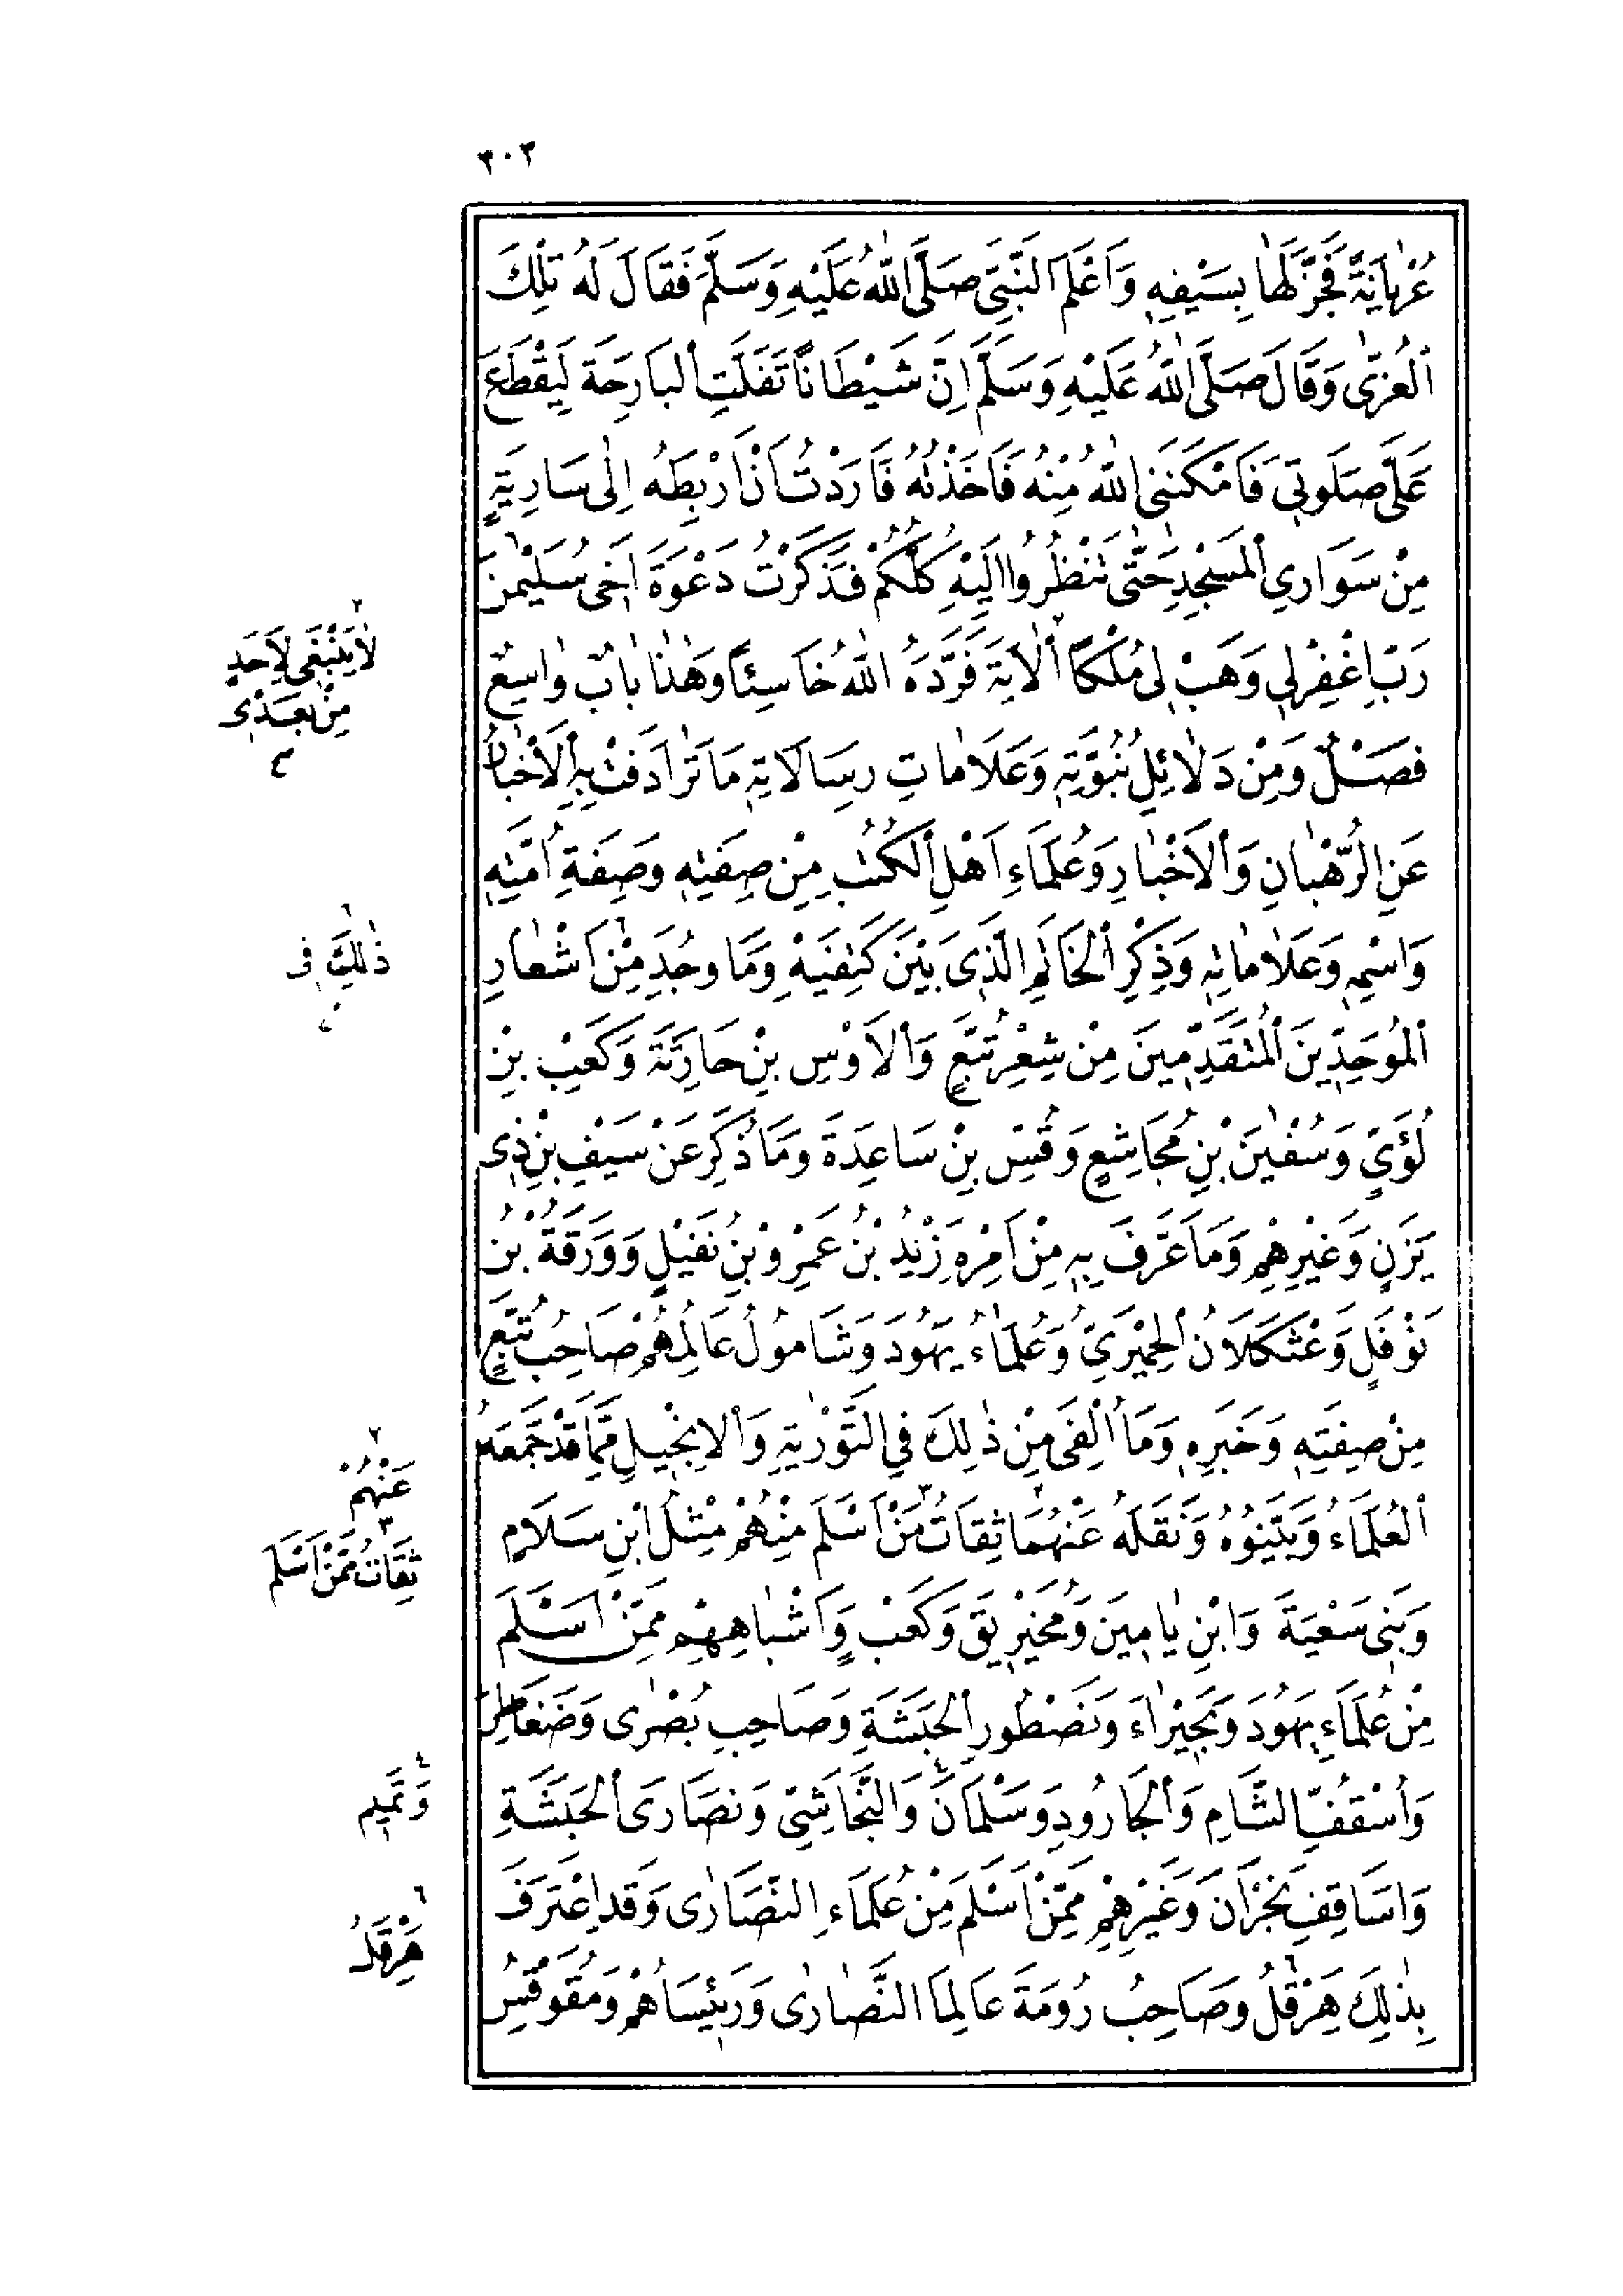 ٣٠٣
عُرْيَانَةً فَجَزَّلَهَا بِسَيْفِهِ وَاَعْلَمَ النَّبِيَّ صَلَّى اللّٰهُ عَلَيْهِ وَسَلَّمَ فَقَالَ لَهُ تِلْكَ
الْعُزّٰى وَقَالَ صَلَّى اللّٰهُ عَلَيْهِ وَسَلَّمَ اِنَّ شَيْطَانًا تَفَلَّتَ الْبَارِحَةَ لِيَقْطَعَ
عَلَىَّ صَلَوتِى فَاَمْكَنَنِى اللّٰهُ مِنْهُ فَاَخَذْتُهُ فَاَرَدْتُ اَنْ اَرْبِطَهُ اِلٰى سَارِيَةٍ
مِنْ سَوَارِي الْمَسْجِدِ حَتّٰى تَنْظُرُوا اِلَيْهِ كُلُّكُمْ فَذَكَرْتُ دَعْوَةَ اَخِى سُلَيْمٰنَ
رَبِّ اغْفِرْلِى وَهَبْ لِى مُلْكًا الْاٰيَةَ فَرَدَّهُ اللّٰهُ خَاسِئًا وَهٰذَا بَابٌ وَاسِعٌ
فَصْلٌ وَمِنْ دَلَائِلِ نُبُوَّتِهِ وَعَلَامَاتِ رِسَالَاتِهِ مَا تَرَادَفَتْ بِهِ الْاَخْبَارُ
عَنِ الرُّهْبَانِ وَالْاَحْبَارِ وَعُلَمَاءِ اَهْلِ الْكُتُبِ مِنْ صِفَتِهِ وَصِفَةِ اُمَّتِهِ
وَاسْمِهِ وَعَلَامَاتِهِ وَذِكْرِ الْخَاتَمِ الَّذِى بَيْنَ كَتِفَيْهِ وَمَا وُجِدَ مِنْ اَشْعَارِ
الْمُوَحِّدِينَ الْمُتَقَدِّمِينَ مِنْ شِعْرِ تُبَّعٍ وَالْاَوْسِ بْنِ حَارِثَةَ وَكَعْبِ بْنِ
لُؤَيٍّ وَسُفْيٰنَ بْنِ مُجَاشِعٍ وَقُسِّ بْنِ سَاعِدَةَ وَمَا ذُكِرَ عَنْ سَيْفِ بْنِ ذِى
يَزَنٍ وَغَيْرِهِمْ وَمَا عَرَّفَ بِهِ مِنْ اَمْرِهِ زَيْدُ بْنُ عَمْرِو بْنِ نُفَيْلٍ وَوَرَقَةُ بْنُ
نَوْفَلٍ وَعَثْكَلَانُ الْحِمْيَرِيُّ وَعُلَمَاءُ يَهُودَ وَشَامُولُ عَالِمُهُمْ صَاحِبُ تُبَّعٍ
مِنْ صِفَتِهِ وَخَبَرِهِ وَمَا اُلْفِىَ مِنْ ذٰلِكَ فِي التَّوْرٰيةِ وَالْاِنْجِيلِ مِمَّا قَدْ جَمَعَهُ
الْعُلَمَاءُ وَبَيَّنُوهُ وَنَقَلَهُ عَنْهُمَا ثِقَاتُ مَنْ اَسْلَمَ مِنْهُمْ مِثْلُ ابْنِ سَلَامٍ
وَبَنِى سَعْيَةَ وَابْنِ يَامِينَ وَمُخَيْرِيقَ وَكَعْبٍ وَاَشْبَاهِهِمْ مِمَّنْ اَسْلَمَ
مِنْ عُلَمَاءِ يَهُودَ وَبَحِيْرَاءَ وَنَصْطُورِ الْحَبَشَةِ وَصَاحِبِ بُصْرٰى وَضَغَاطِرَ
وَاُسْقُفِّ الشَّامِ وَالْجَارُودِ وَسَلْمَانَ وَالنَّجَاشِيِّ وَنَصَارَى الْحَبَشَةِ
وَاَسَاقِفِ نَجْرَانَ وَغَيْرِهِمْ مِمَّنْ اَسْلَمَ مِنْ عُلَمَاءِ النَّصَارٰى وَقَدِ اعْتَرَفَ
بِذٰلِكَ هِرَقْلُ وَصَاحِبُ رُومَةَ عَالِمَا النَّصَارٰى وَرَئِيسَاهُمْ وَمُقَوْقِسُ
٢
لَا يَنْبَغِى لِاَحَدٍ
مِنْ بَعْدِى
٦
ذٰلِكَ فِى
٢
عَنْهُمْ
٣
ثِقَاتٌ مِمَّنْ اَسْلَمَ
٤
وَتَمِيمٍ
٦
هِرَقْلُ